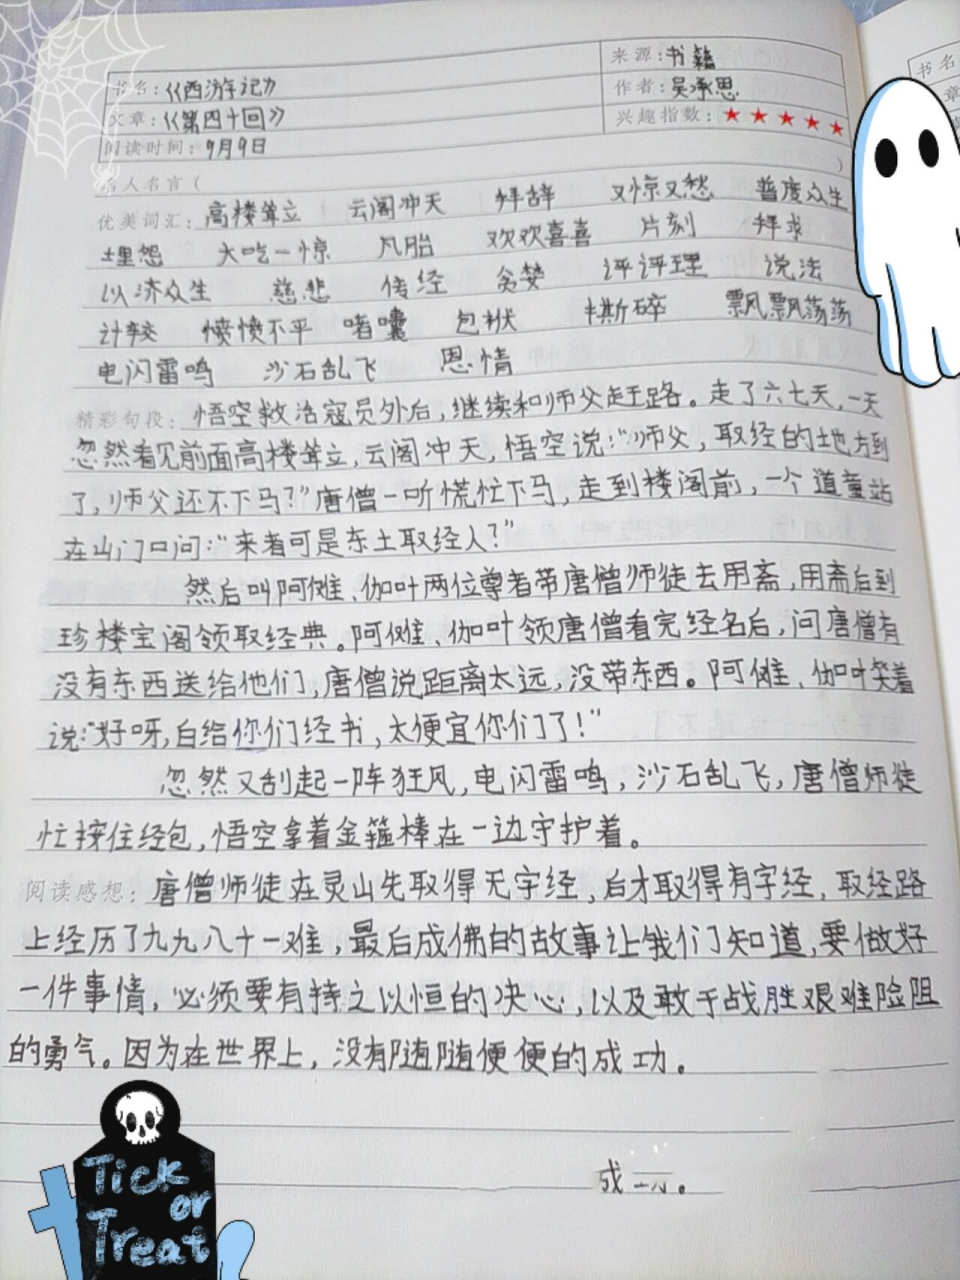 来源:书籍
书名:《西游记》
作者:吴承恩
文章:《第四十回》
兴趣指数:★★★★★
阅读时间:9月9日
名人名言(
)
优美词汇:高楼耸立 云阁冲天 拜辞 又惊又愁 普度众生
埋怨 大吃一惊 凡胎 欢欢喜喜 片刻 拜求
以济众生 慈悲 传经 贪婪 评评理 说法
计较 愤愤不平 啫囊 包袱 撕碎 飘飘荡荡
电闪雷鸣 沙石乱飞 恩情
精彩句段:悟空救活寇员外后,继续和师父赶路。走了六七天,一天
忽然看见前面高楼耸立,云阁冲天,悟空说:"师父,取经的地方到
了,师父还不下马?"唐僧一听慌忙下马,走到楼阁前,一个道童站
在山门口问:"来者可是东土取经人?"
然后叫阿傩、伽叶两位尊者带唐僧师徒去用斋,用斋后到
珍楼宝阁领取经典。阿傩、伽叶领唐僧看完经名后,问唐僧有
没有东西送给他们,唐僧说距离太远,没带东西。阿傩、伽叶笑着
说:"好呀,白给你们经书,太便宜你们了!"
忽然又刮起一阵狂风,电闪雷鸣,沙石乱飞,唐僧师徒
忙按住经包,悟空拿着金箍棒在一边守护着。
阅读感想:唐僧师徒在灵山先取得无字经,后才取得有字经,取经路
上经历了九九八十一难,最后成佛的故事让我们知道,要做好
一件事情,必须要有持之以恒的决心,以及敢于战胜艰难险阻
的勇气。因为在世界上,没有随随便便的成功。
Tick
or
Treat
书名
章